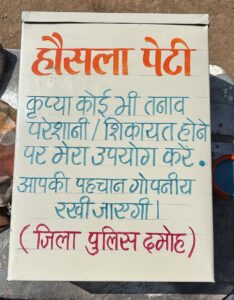 हौसला पेटी
कृप्या कोई भी तनाव
परेशानी/शिकायत होने
पर मेरा उपयोग करें.
आपकी पहचान गोपनीय
रखी जाएगी।
(जिला पुलिस दमोह)